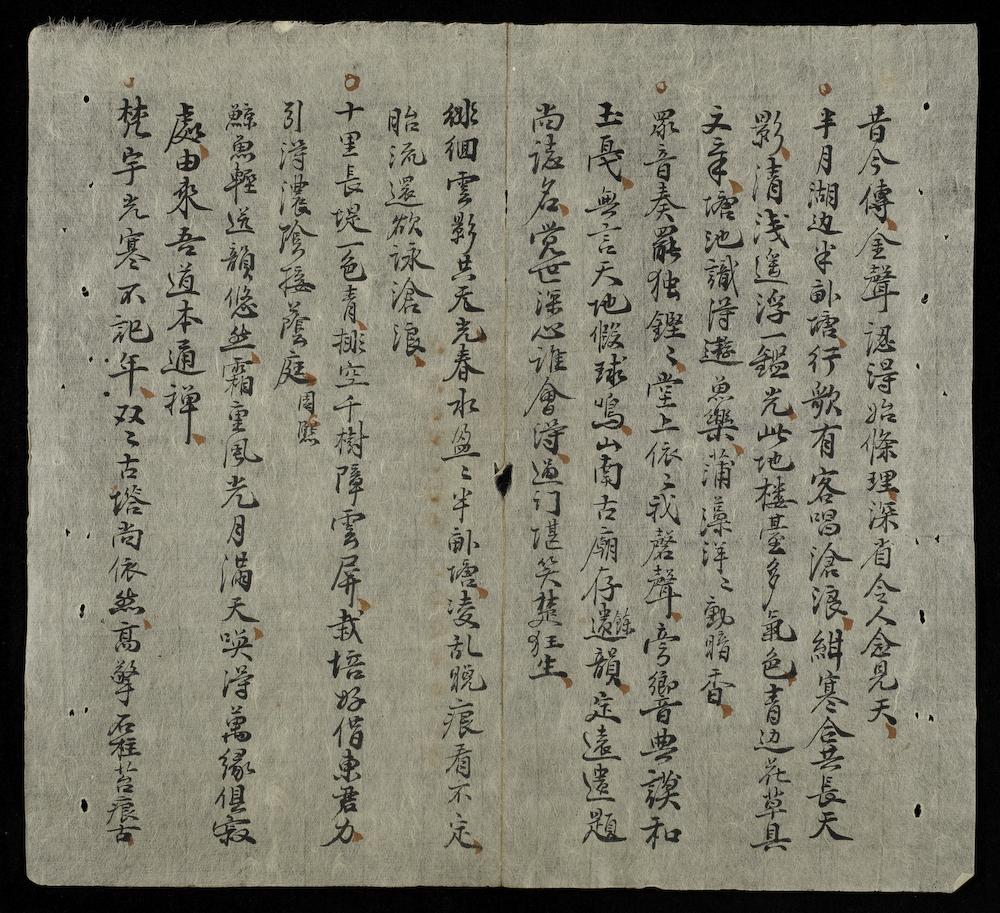 昔今傳金聲認得始條理深省令人念見天
半月湖边半畝塘行歌有客唱滄浪紺寒合共長天
影清浅遥浮一鑑光此地楼臺多氣色青边花草具
文章塘池識得遊魚樂蒲藻洋〻動暗香
眾音奏罷独鏗〻堂上依〻戒磬聲旁嚮音典謨和
玉戛無言天地假球鳴山南古廟存遺韻定遠遺題
餘
尚誌名覚世深心誰會得過门堪笑楚狂生
徘徊雲影共天光春水盈〻半畝塘凌乱晚痕看不定
眙流還欲詠滄浪
十里長堤一色青排空千樹障雲屏栽培好借東君力
引得濃陰接蔭庭周㷔
鯨魚輕送韻悠然霜重風光月滿天喚得萬緣俱寂
處由来吾道本通禅
梵宇光寒不記年双〻古塔尚依然高擎石柱苔痕古